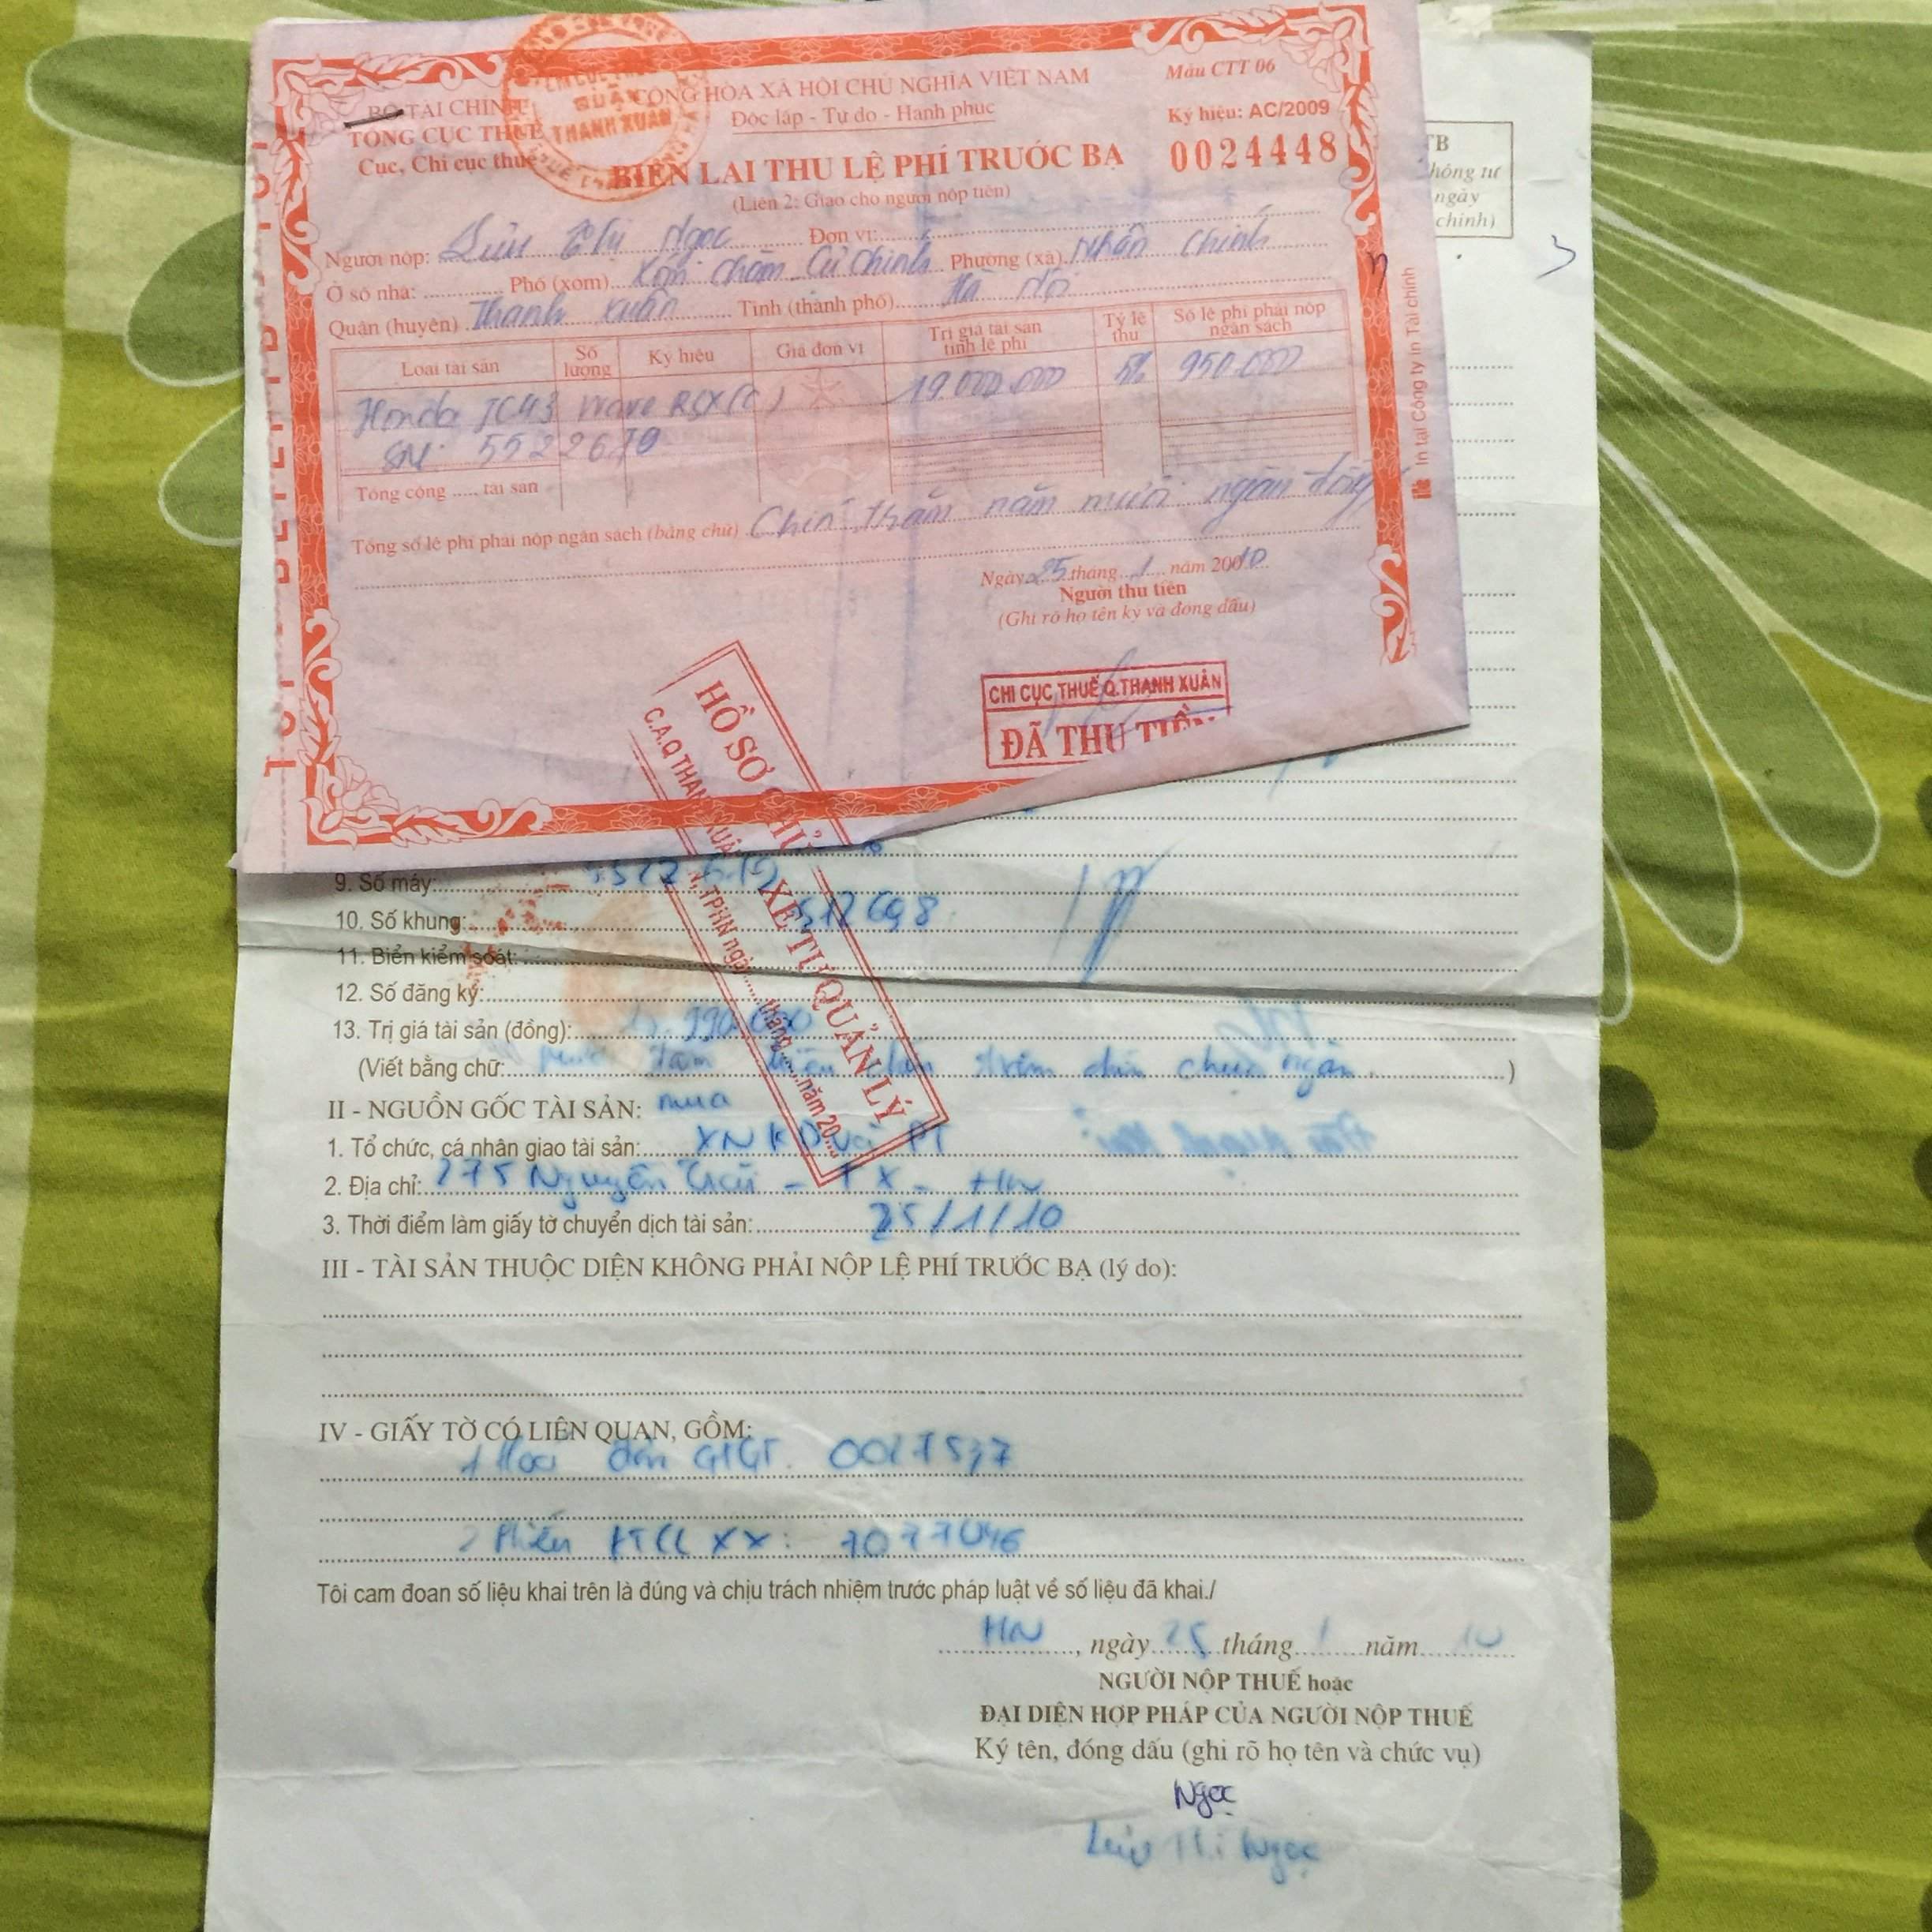 BỘ TÀI CHÍNH
TỔNG CỤC THUẾ
Cục, Chi cục thuế
QUẬN
THANH XUÂN
CỘNG HÒA XÃ HỘI CHỦ NGHĨA VIỆT NAM
Độc lập - Tự do - Hạnh phúc
Mẫu CTT 06
Ký hiệu: AC/2009
0024448
BIÊN LAI THU LỆ PHÍ TRƯỚC BẠ
(Liên 2: Giao cho người nộp tiền)
Người nộp: Lưu Thị Ngọc Đơn vị:
Ở số nhà: Phố (xóm) Xóm Chùm Cự Chính Phường (xã) Nhân Chính
Quận (huyện) Thanh Xuân Tỉnh (thành phố) Hà Nội
Loại tài sản Số lượng Ký hiệu Giá đơn vị Trị giá tài sản tính lệ phí Tỷ lệ thu Số lệ phí phải nộp ngân sách
Honda JC43 Wave RSX(C) 19.000.000 5% 950.000
SM: 5522679
Tổng cộng ..... tài sản
Tổng số lệ phí phải nộp ngân sách (bằng chữ) Chín trăm năm mươi ngàn đồng
Ngày 25 tháng 1 năm 20010
Người thu tiền
(Ghi rõ họ tên ký và đóng dấu)
CHI CỤC THUẾ Q.THANH XUÂN
ĐÃ THU TIỀN
In tại Công ty in Tài chính
TB
hông tư
ngày
chính)
HỒ SƠ CHỦ XE TỰ QUẢN LÝ
C.A.Q THANH XUÂN, TPHN ngày ..... tháng ..... năm 20...
9. Số máy:
10. Số khung: 512698
11. Biển kiểm soát:
12. Số đăng ký:
13. Trị giá tài sản (đồng): 990.000
(Viết bằng chữ: trăm chín chục ngàn )
II - NGUỒN GỐC TÀI SẢN: mua
1. Tổ chức, cá nhân giao tài sản: XNKD và PT
2. Địa chỉ: 275 Nguyễn Trãi - TX - HN
3. Thời điểm làm giấy tờ chuyển dịch tài sản: 25/1/10
III - TÀI SẢN THUỘC DIỆN KHÔNG PHẢI NỘP LỆ PHÍ TRƯỚC BẠ (lý do):
IV - GIẤY TỜ CÓ LIÊN QUAN, GỒM:
1 Hoá đơn GTGT. 0027537
2 Phiếu KTCLXX: 7077046
Tôi cam đoan số liệu khai trên là đúng và chịu trách nhiệm trước pháp luật về số liệu đã khai./
HN, ngày 25 tháng 1 năm 10
NGƯỜI NỘP THUẾ hoặc
ĐẠI DIỆN HỢP PHÁP CỦA NGƯỜI NỘP THUẾ
Ký tên, đóng dấu (ghi rõ họ tên và chức vụ)
Ngọc
Lưu Thị Ngọc